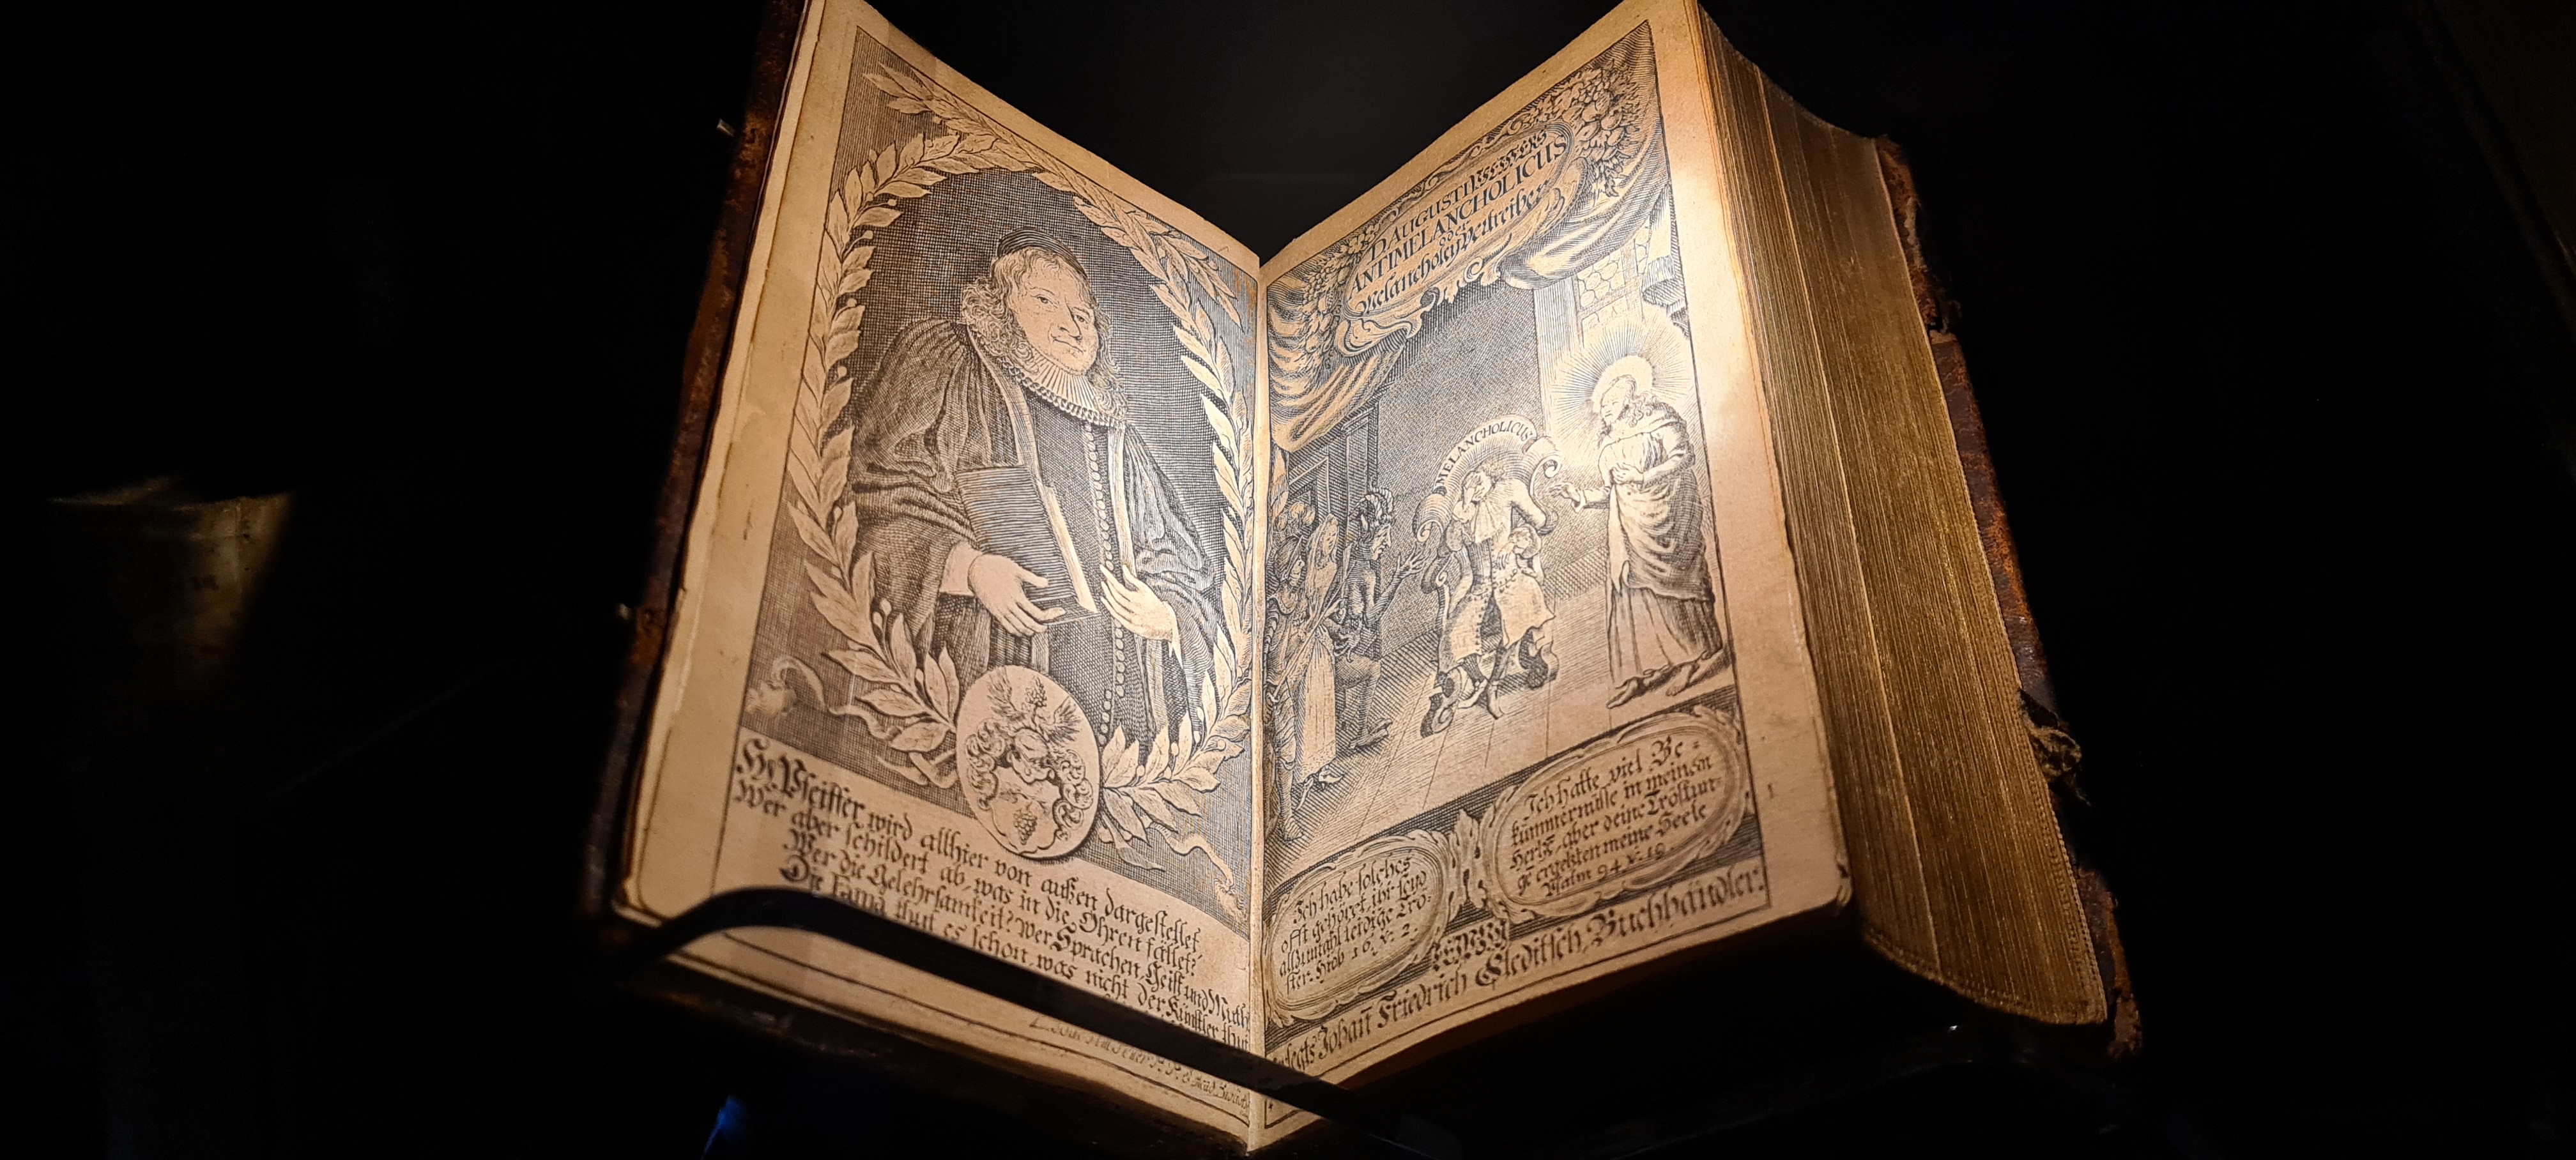 H. Pfeiffer wird allhier von außen dargestellet,
Wer aber schildert ab, was in die Ohren fället?
Wer die Gelehrsamkeit? wer Sprachen, Geist und Muth?
Die Fama thut es schon, was nicht der Künstler thut
D. AUGUSTI PFEIFFERS
ANTIMELANCHOLICUS
oder
Melancholey Vertreiber
MELANCHOLICUS
Ich habe solches
offt gehöret, ihr seyd
allzumahl leidige Trö-
ster. Hiob 16. v. 2.
Ich hatte viel Be-
kümmernisse in meinem
Hertzē, aber deine Tröstun-
gē ergetzten meine Seele
Psalm 94. v. 19.
LEIPZIG
Johañ Friedrich Gleditsch, Buchhändler.